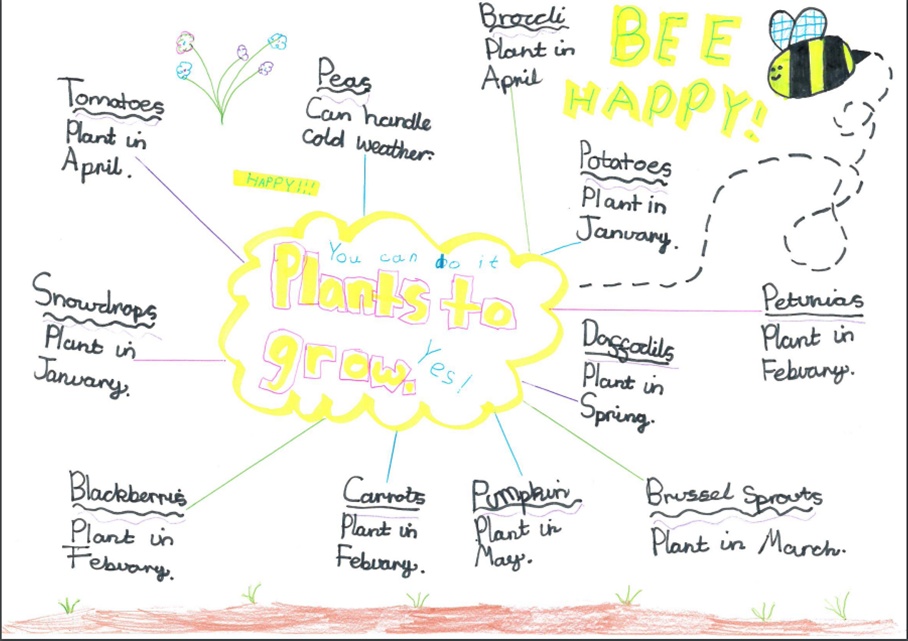 Broccli
Plant in
April
BEE
HAPPY!
Tomatoes
Plant in
April.
Peas
Can handle
cold weather.
HAPPY!!!
Potatoes
Plant in
January.
You can do it
Plants to
grow.
Yes!
Snowdrops
Plant in
January.
Petunias
Plant in
Febuary.
Daffodils
Plant in
Spring.
Blackberris
Plant in
Febuary.
Carrots
Plant in
Febuary.
Pumpkin
Plant in
May.
Brussel Sprouts
Plant in March.